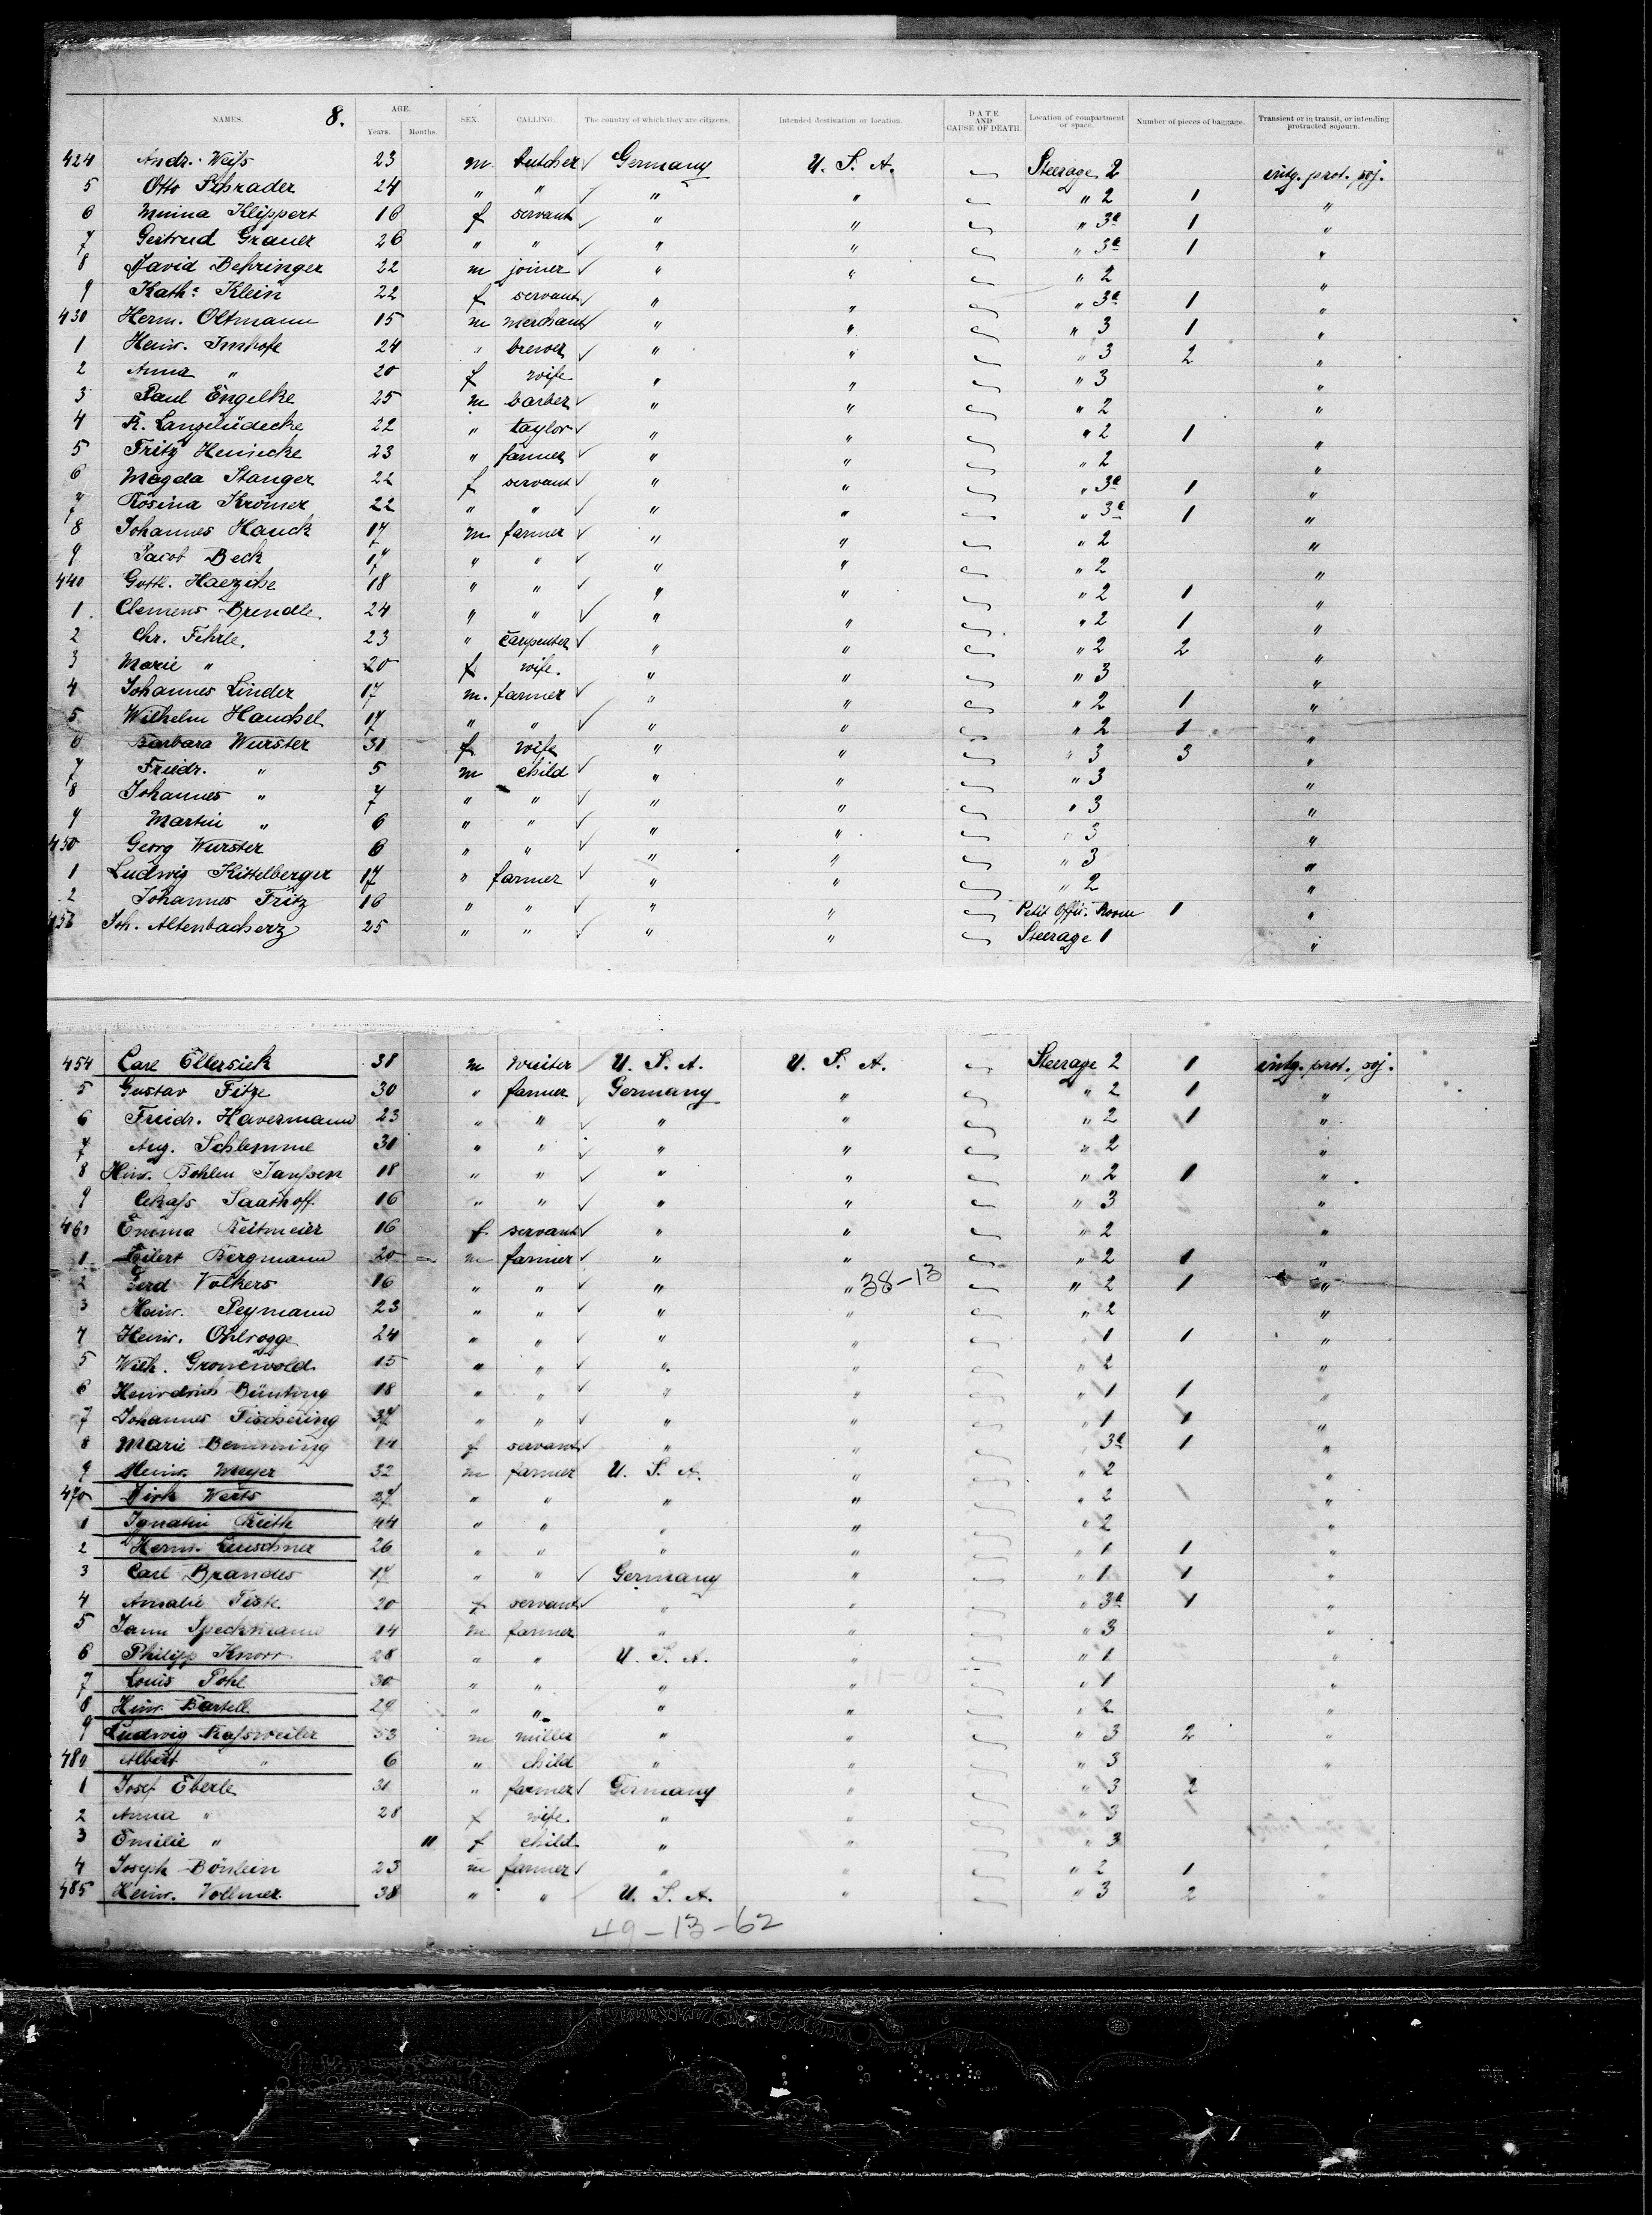 NAMES. 8. AGE. Years. Months. SEX. CALLING. The country of which they are citizens. Intended destination or location. DATE AND CAUSE OF DEATH. Location of compartment or space. Number of pieces of baggage. Transient or in transit, or intending protracted sojourn.
424 Andr. Weiſs 23 m. butcher Germany U. S. A. Steerage 2 intg. prot. soj.
5 Otto Schrader 24 " " " " " 2 1 "
6 Minna Klippert 16 f servant " " " 3a 1 "
7 Gertrud Grauer 26 " " " " " 3a 1 "
8 David Behringer 22 m joiner " " " 2 "
9 Kath. Klein 22 f servant " " " 3a 1 "
430 Herm. Oltmann 15 m merchant " " " 3 1 "
1 Heinr. Imhofe 24 " brewer " " " 3 2 "
2 Anna " 20 f wife " " " 3 "
3 Paul Engelke 25 m barber " " " 2 "
4 R. Langelüdecke 22 " taylor " " " 2 1 "
5 Fritz Heinecke 23 " farmer " " " 2 "
6 Magda Stanger 22 f servant " " " 3a 1 "
7 Rosina Krömer 22 " " " " " 3a 1 "
8 Johannes Hauck 17 m farmer " " " 2 "
9 Jacob Beck 17 " " " " " 2 "
440 Gottl. 18 " " " " " 2 1 "
1 Clemens Brendle 24 " " " " " 2 1 "
2 Chr. Fehrle 23 " carpenter " " " 2 2 "
3 Marie " 20 f wife. " " " 3 "
4 Johannes Linder 17 m. farmer " " " 2 1 "
5 Wilhelm 17 " " " " " 2 1 "
6 Barbara Wurster 31 f wife " " " 3 3 "
7 Friedr. " 5 m child " " " 3 "
8 Johannes " 7 " " " " " 3 "
9 Martin " 6 " " " " " 3 "
450 Georg Wurster 6 " " " " " 3 "
1 Ludwig Kittelberger 17 " farmer " " " 2 "
2 Johannes Fritz 16 " " " " Petit Offic. Room 1 "
Joh. 25 " " " " Steerage 1 "
454 Carl Ellersiek 38 m U. S. A. U. S. A. Steerage 2 1 intg. prot. soj.
5 Gustav Fitze 30 " farmer Germany " " 2 1 "
6 Friedr. Havermann 23 " " " " " 2 1 "
7 Aug. Schlemme 30 " " " " " 2 "
8 Hinr. Bohlen Janſsen 18 " " " " " 2 1 "
9 Saathoff 16 " " " " " 3 "
460 Emma Reitmeier 16 f servant " " " 2 "
1 Eilert Bergmann 20 m farmer " " " 2 1 "
2 Gerd Volkers 16 " " " " 38-13 " 2 1 "
3 Heinr. Reymann 23 " " " " " 2 "
4 Heinr. Ohlrogge 24 " " " " " 1 1 "
5 Wilh. Gronewold 15 " " " " " 2 "
6 Heinrich Bünting 18 " " " " " 1 1 "
7 Johannes Fischering 37 " " " " " 1 1 "
8 Marie Bemming 14 f servant " " " 3a 1 "
9 Heinr. Meyer 32 m farmer U. S. A. " " 2 "
470 Dirk Weits 27 " " " " " 2 "
1 44 " " " " " 2 "
2 Herm. Leuschner 26 " " " " " 1 1 "
3 Carl Brandes 17 " " Germany " " 1 1 "
4 Amalie 20 f servant " " " 3a 1 "
5 Jann Speckmann 14 m farmer " " " 3 "
6 Philipp Knorr 28 " " U. S. A. " " 1 "
7 Louis Pohl 30 " " " " " 1 "
8 Hinr. Bartell 29 " " " " " 2 "
9 Ludwig Raſsweiler 53 m miller " " " 3 2 "
480 Albert " 6 " child " " " 3 "
1 Josef Eberle 31 " farmer Germany " " 3 2 "
2 Anna " 28 f wife " " " 3 "
3 Emilie " 11 f child " " " 3 "
4 Joseph Bönlein 23 m farmer " " " 2 1 "
485 Heinr. Vollmer 38 " " U. S. A. " " 3 2 "
49-13-62